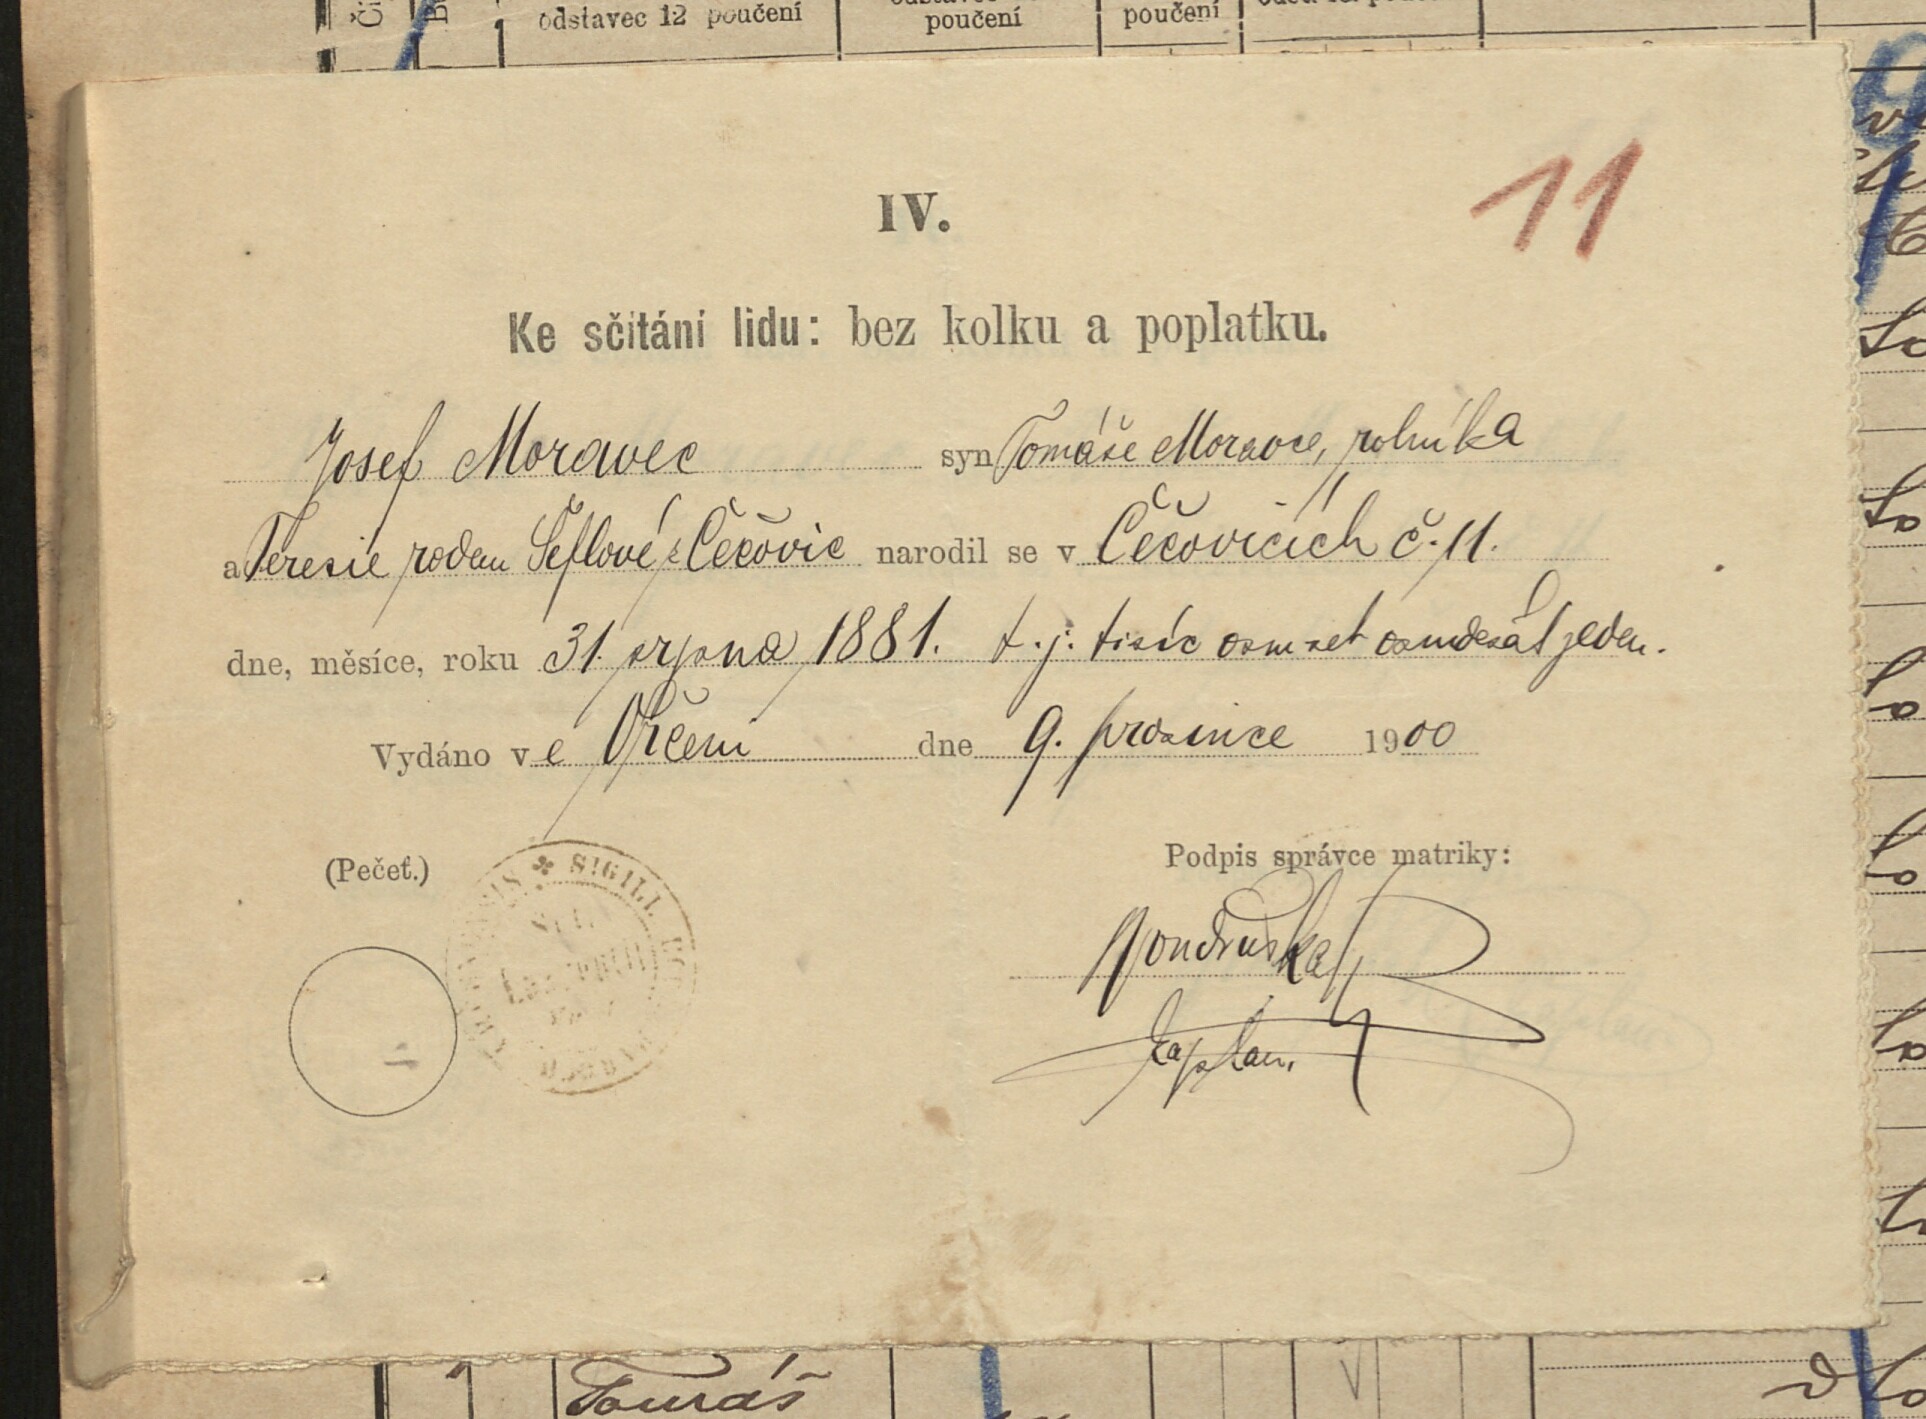 odstavec 12 poučení
poučení
poučení
IV.
11
Ke sčítání lidu: bez kolku a poplatku.
Josef Moravec syn Tomáše Moravce, rolníka
a Teresie rodem Šeflové z Čečovic narodil se v Čečovicích č. 11.
dne, měsíce, roku 31. srpna 1881. t. j. tisíc osmset osmdesát jeden.
Vydáno ve Vřčeni dne 9. prosince 1900
(Pečeť.)
SIGILL
Podpis správce matriky:
Vondruška
kaplan.
Tomáš